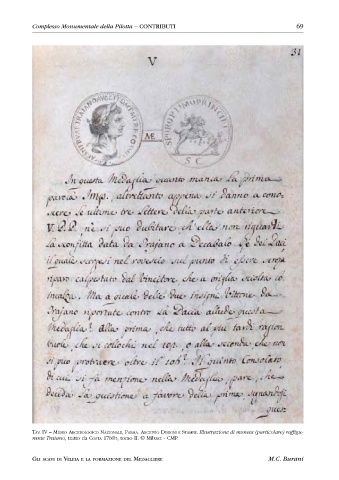 Complesso Monumentale della Pilotta – CONTRIBUTI 69
31
V
Æ
S. C.
In questa Medaglia quanto manca la prima
parola Imp. altrettanto appena si danno a cono-
scere le ultime tre lettere della parte anteriore
V. P. P. ne si può dubitare ch'ella non riguardi
la sconfitta data da Trajano a Decebalo Re dei Daci
il quale scorgesi nel rovescio sul punto di essere senza
riparo calpestato dal Vincitore che a briglia sciolta lo
incalza. Ma a quale delle due insigni Vittorie da
Trajano riportate contro la Dacia allude questa
Medaglia? Alla prima, che tutto al più tardi ragion
vuole, che si collochi nel 103, o alla seconda che non
si può protraere oltre il 106? Il quinto Consolato
di cui si fa menzione nella Medaglia, pare, che
decida la questione a favore della prima
TAV. IV – MUSEO ARCHEOLOGICO NAZIONALE, PARMA. ARCHIVIO DISEGNI E STAMPE. Illustrazione di moneta (particolare) raffigu-
rante Traiano, tratto da
GLI SCAVI DI VELEIA E LA FORMAZIONE DEL MEDAGLIERE M.C. Burani